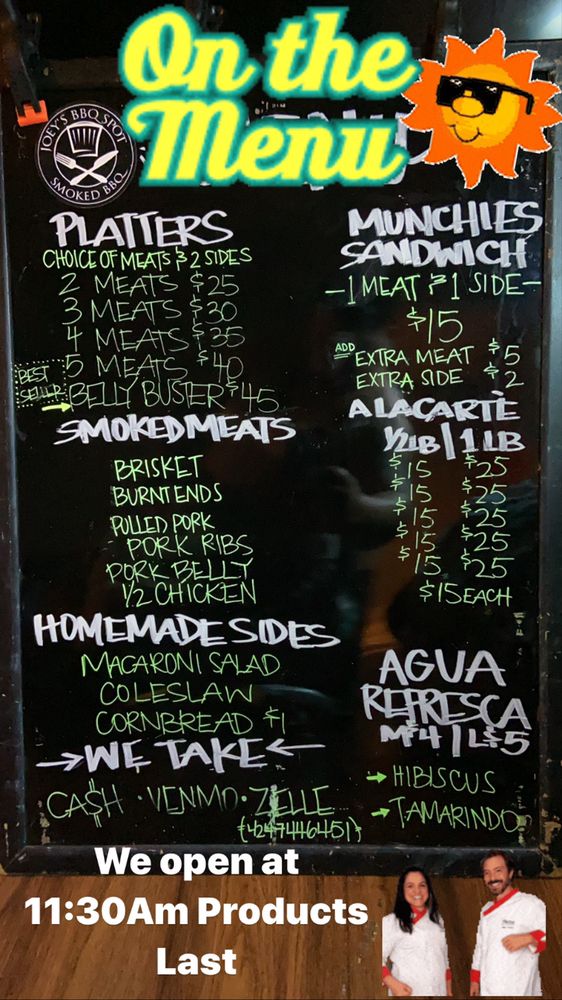 On the
Menu
JOEY'S BBQ SPOT
SMOKED BBQ
PLATTERS
CHOICE OF MEATS & 2 SIDES
2 MEATS $25
3 MEATS $30
4 MEATS $35
5 MEATS $40
BEST SELLER → BELLY BUSTER $45
MUNCHIES
SANDWICH
-1 MEAT & 1 SIDE-
$15
ADD EXTRA MEAT $5
EXTRA SIDE $2
SMOKED MEATS
A LA CARTÈ
1/2LB | 1 LB
BRISKET $15 $25
BURNT ENDS $15 $25
PULLED PORK $15 $25
PORK RIBS $15 $25
PORK BELLY $15 $25
1/2 CHICKEN $15 EACH
HOMEMADE SIDES
MACARONI SALAD
COLESLAW
CORNBREAD $1
AGUA
REFRESCA
M $4 | L $5
→ HIBISCUS
→ TAMARINDO
→ WE TAKE ←
CA$H · VENMO · ZELLE
(4247446451)
We open at
11:30Am Products
Last